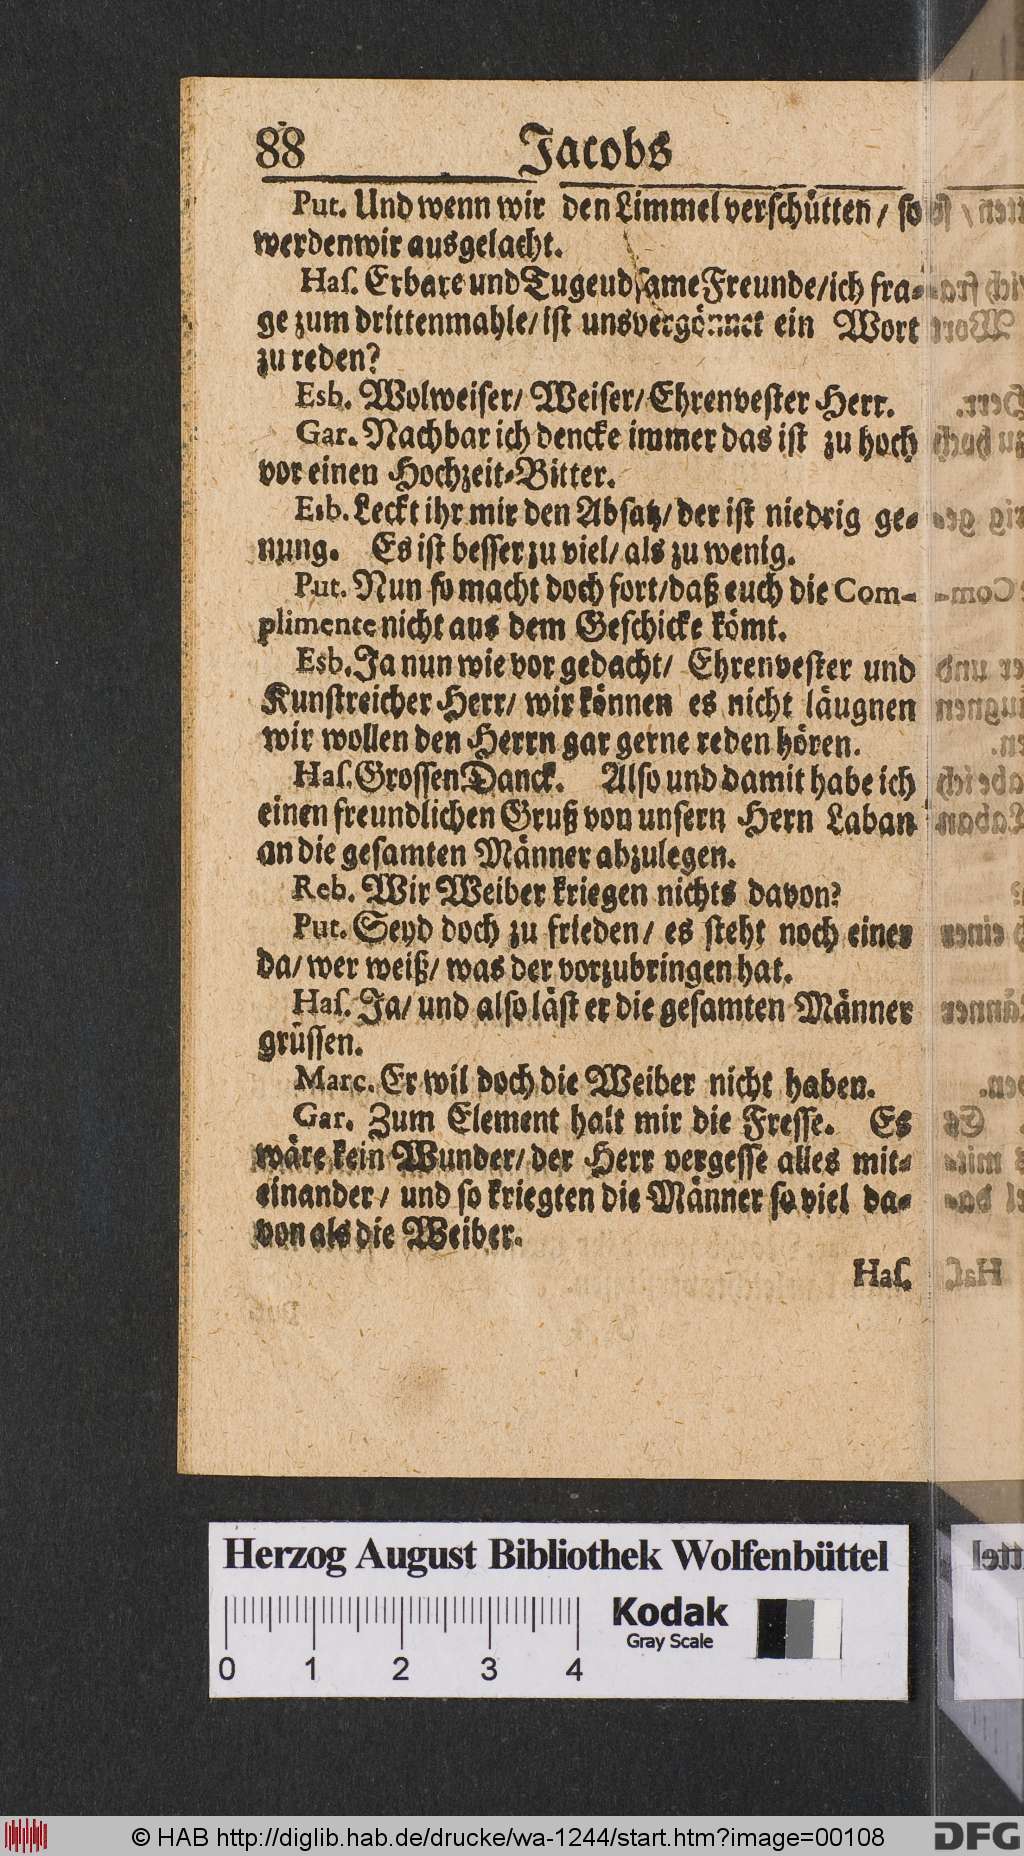 88 Jacobs
Put. Und wenn wir den Limmel verschütten / so
werden wir ausgelacht.
Has. Erbare und Tugendsame Freunde/ich fra-
ge zum drittenmahle/ ist uns vergönnet ein Wort
zu reden?
Esb. Wolweiser/ Weiser/ Ehrenvester Herr.
Gar. Nachbar ich dencke immer das ist zu hoch
vor einen Hochzeit-Bitter.
Esb. Leckt ihr mir den Absatz/ der ist niedrig ge-
nung. Es ist besser zu viel/ als zu wenig.
Put. Nun so macht doch fort/daß euch die Com-
plimente nicht aus dem Geschicke kömt.
Esb. Ja nun wie vor gedacht/ Ehrenvester und
Kunstreicher Herr/ wir können es nicht läugnen
wir wollen den Herrn gar gerne reden hören.
Has. Grossen Danck. Also und damit habe ich
einen freundlichen Gruß von unsern Hern Laban
an die gesamten Männer abzulegen.
Reb. Wir Weiber kriegen nichts davon?
Put. Seyd doch zu frieden/ es steht noch einer
da/ wer weiß/ was der vorzubringen hat.
Has. Ja/ und also läst er die gesamten Männer
grüssen.
Marc. Er wil doch die Weiber nicht haben.
Gar. Zum Element halt mir die Fresse. Es
wäre kein Wunder/ der Herr vergesse alles mit-
einander/ und so kriegten die Männer so viel da-
von als die Weiber.
Has.
Herzog August Bibliothek Wolfenbüttel
Kodak
Gray Scale
0 1 2 3 4
© HAB http://diglib.hab.de/drucke/wa-1244/start.htm?image=00108
DFG